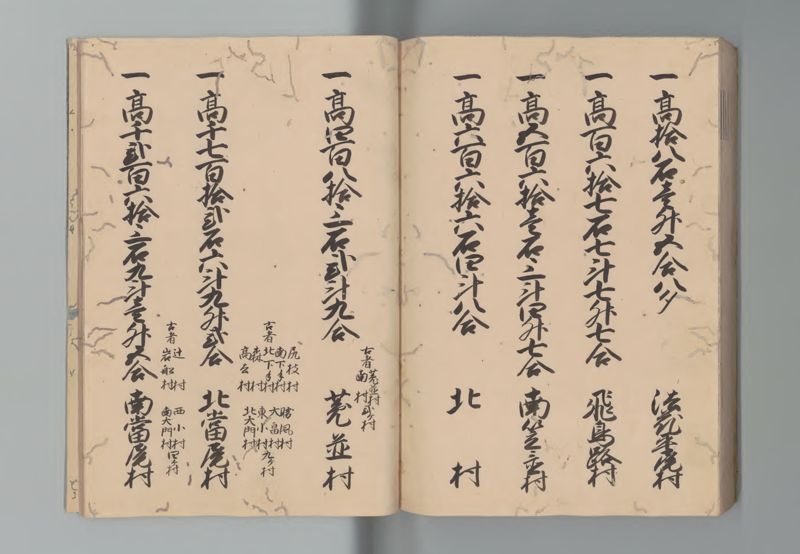 一高拾八石壱升五合八夕 法花寺野村
一高百六拾七石七斗七升七合 飛鳥路村
一高五百六拾壱石三斗四升七合 南笠置村
一高六百六拾六石四斗八合 北村
一高四百八拾三石弐斗九合 兎並村
古者 兎並村 南村 弐ヶ村
一高千七百拾弐石六斗九升弐合 北當尾村
古者 尻枝村 南下手村 北下手村 森村 高去村
勝風村 大畠村 東小村 北大門村 九ヶ村
一高千弐百六拾三石九斗壱升五合 南當尾村
古者 辻村 岩船村
西小村 南大門村 四ヶ村